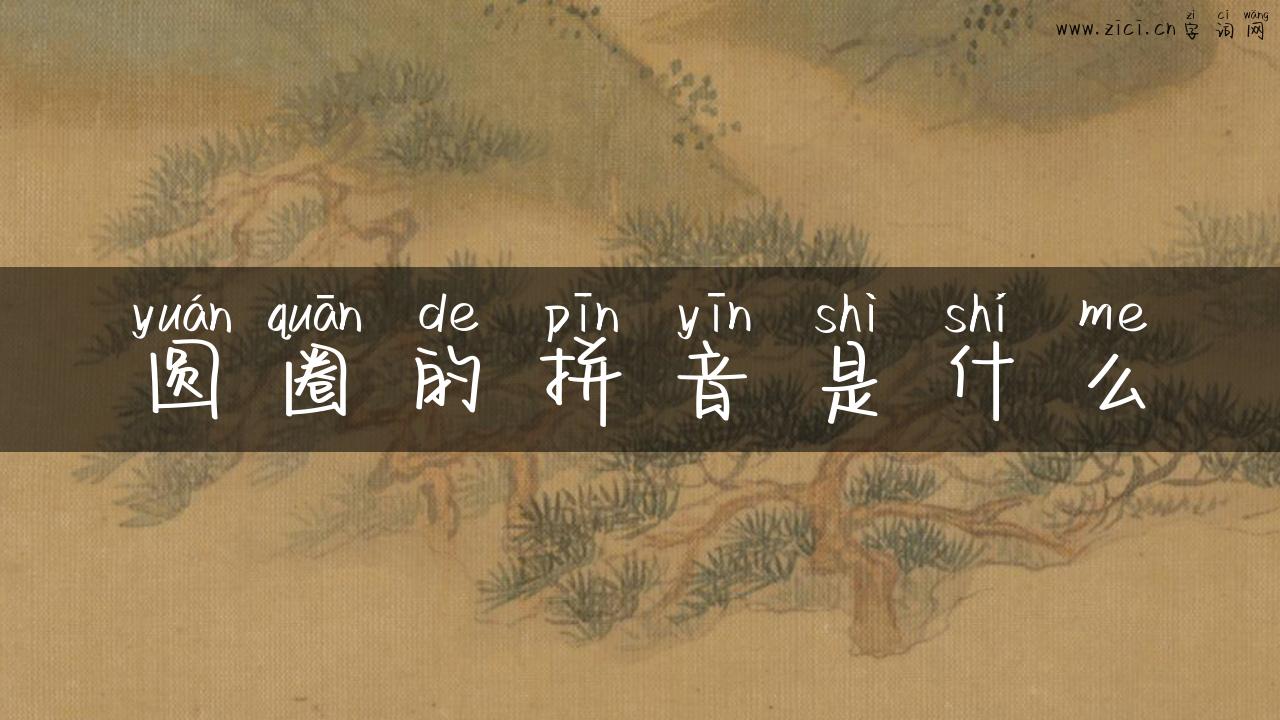 zì cí wǎng
www.zici.cn 字词网
yuán quān de pīn yīn shì shí me
圆圈的拼音是什么